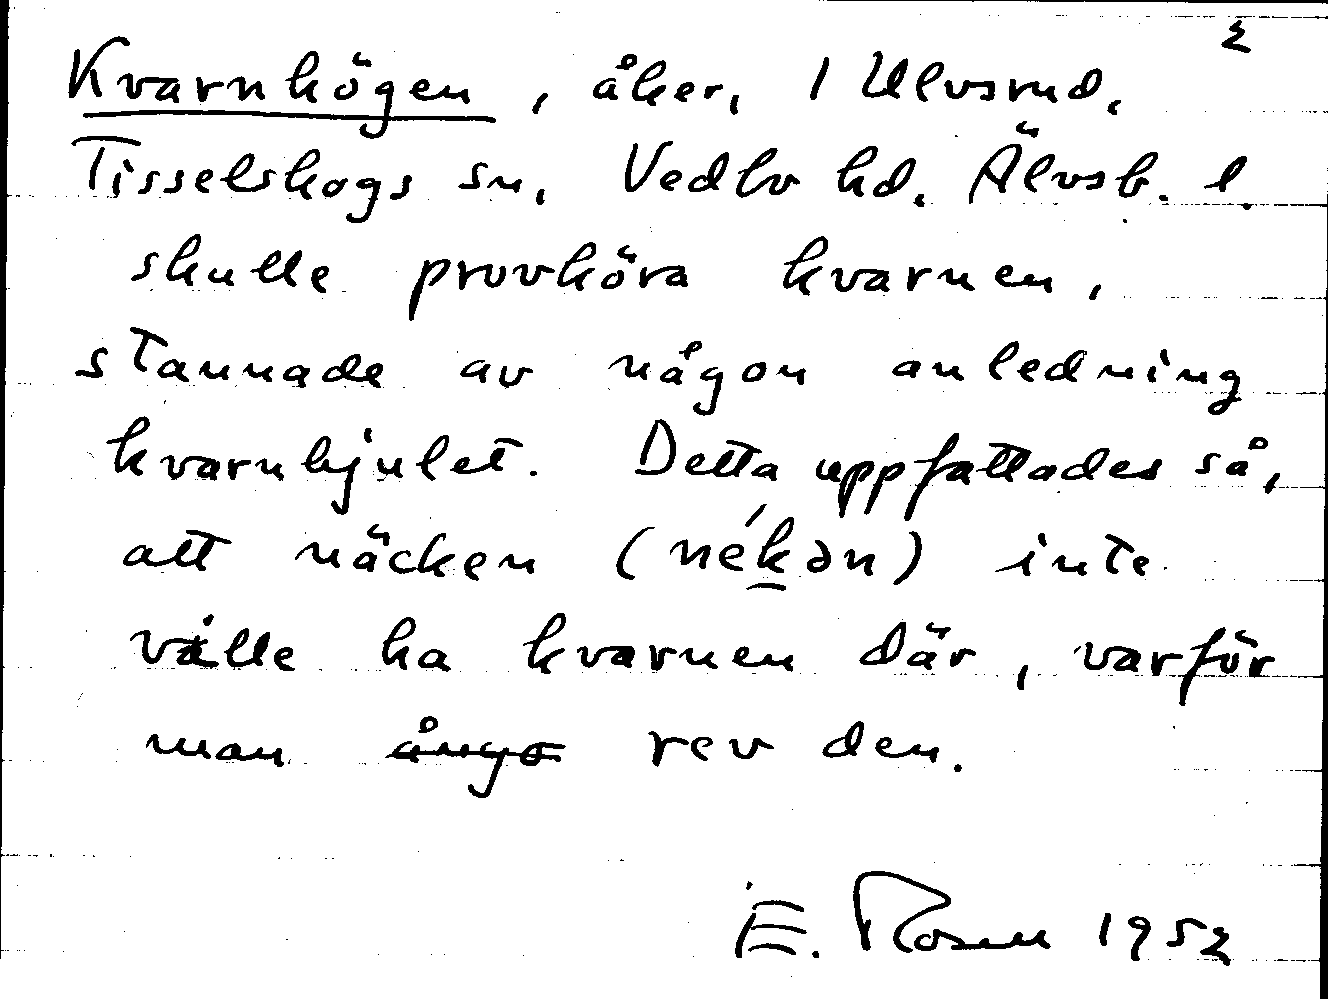 2
Kvarnhögen, åker, 1 Ulvsrud,
Tisselskogs sn, Vedbo hd, Älvsb. l.
skulle provköra kvarnen,
stannade av någon anledning
kvarnhjulet. Detta uppfattades så,
att näcken (nékən) inte
ville ha kvarnen där, varför
man ångo rev den.
E. Rosen 1952